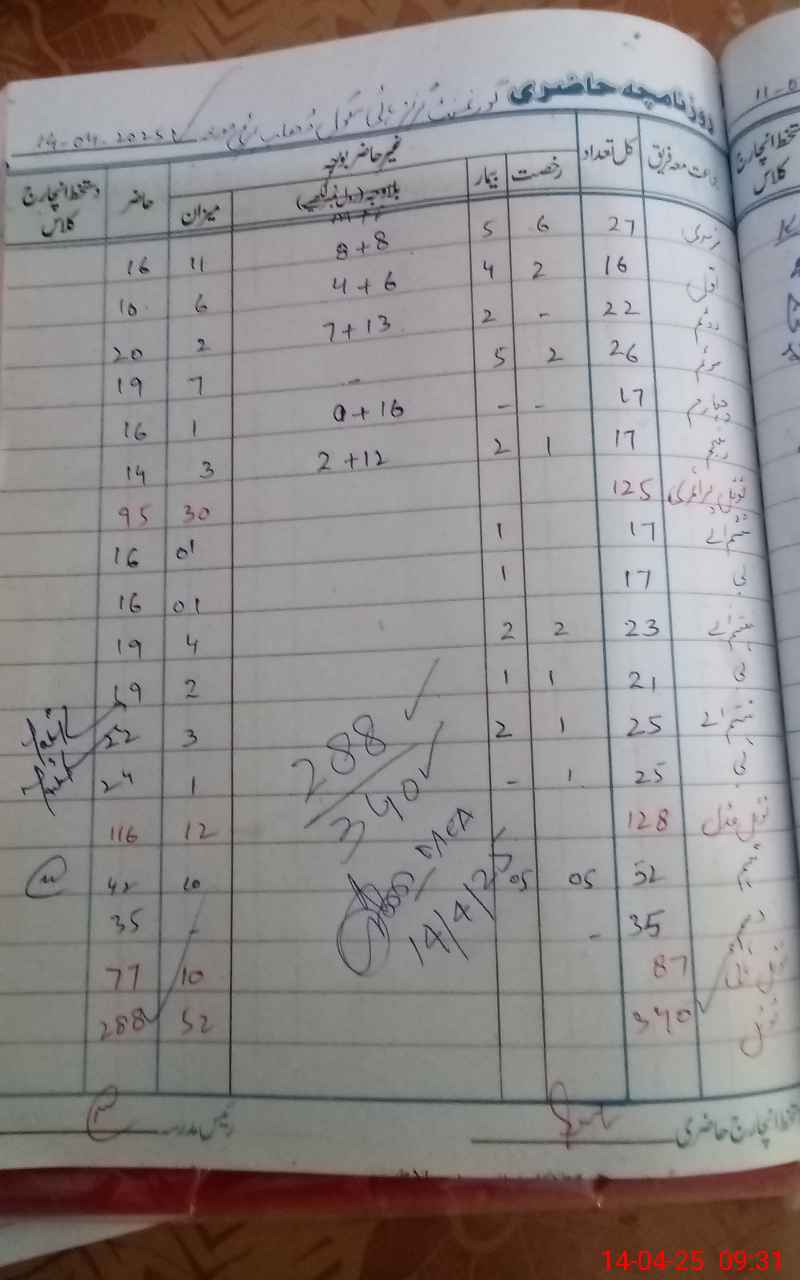 روزنامچہ حاضری گورنمنٹ گرلز ہائی سکول 14-04-2025
جماعت معہ فریق کل تعداد رخصت بیمار غیر حاضر بوجہ حاضر دستخط انچارج کلاس
بلاوجہ (رول نمبر لکھیے) میزان
نرسری 27 6 5 8+8 11 16
اول 16 2 4 4+6 6 10
دوئم 22 - 2 7+13 2 20
سوئم 26 2 5 - 7 19
چہارم 17 - - 0+16 1 16
پنجم 17 1 2 2+12 3 14
ٹوٹل پرائمری 125 30 95
ششم اے 17 1 01 16
بی 17 1 01 16
ہفتم اے 23 2 2 4 19
بی 21 1 1 2 19
ہشتم اے 25 1 2 3 22
بی 25 1 - 1 24
288
340
ٹوٹل مڈل 128 12 116
نہم 52 05 05 10 42
14/4/25
دہم 35 - - 35
ٹوٹل ہائی 87 10 77
ٹوٹل 340 52 288
دستخط انچارج حاضری رئیس مدرسہ
11-0
دستخط انچارج کلاس
14-04-25 09:31